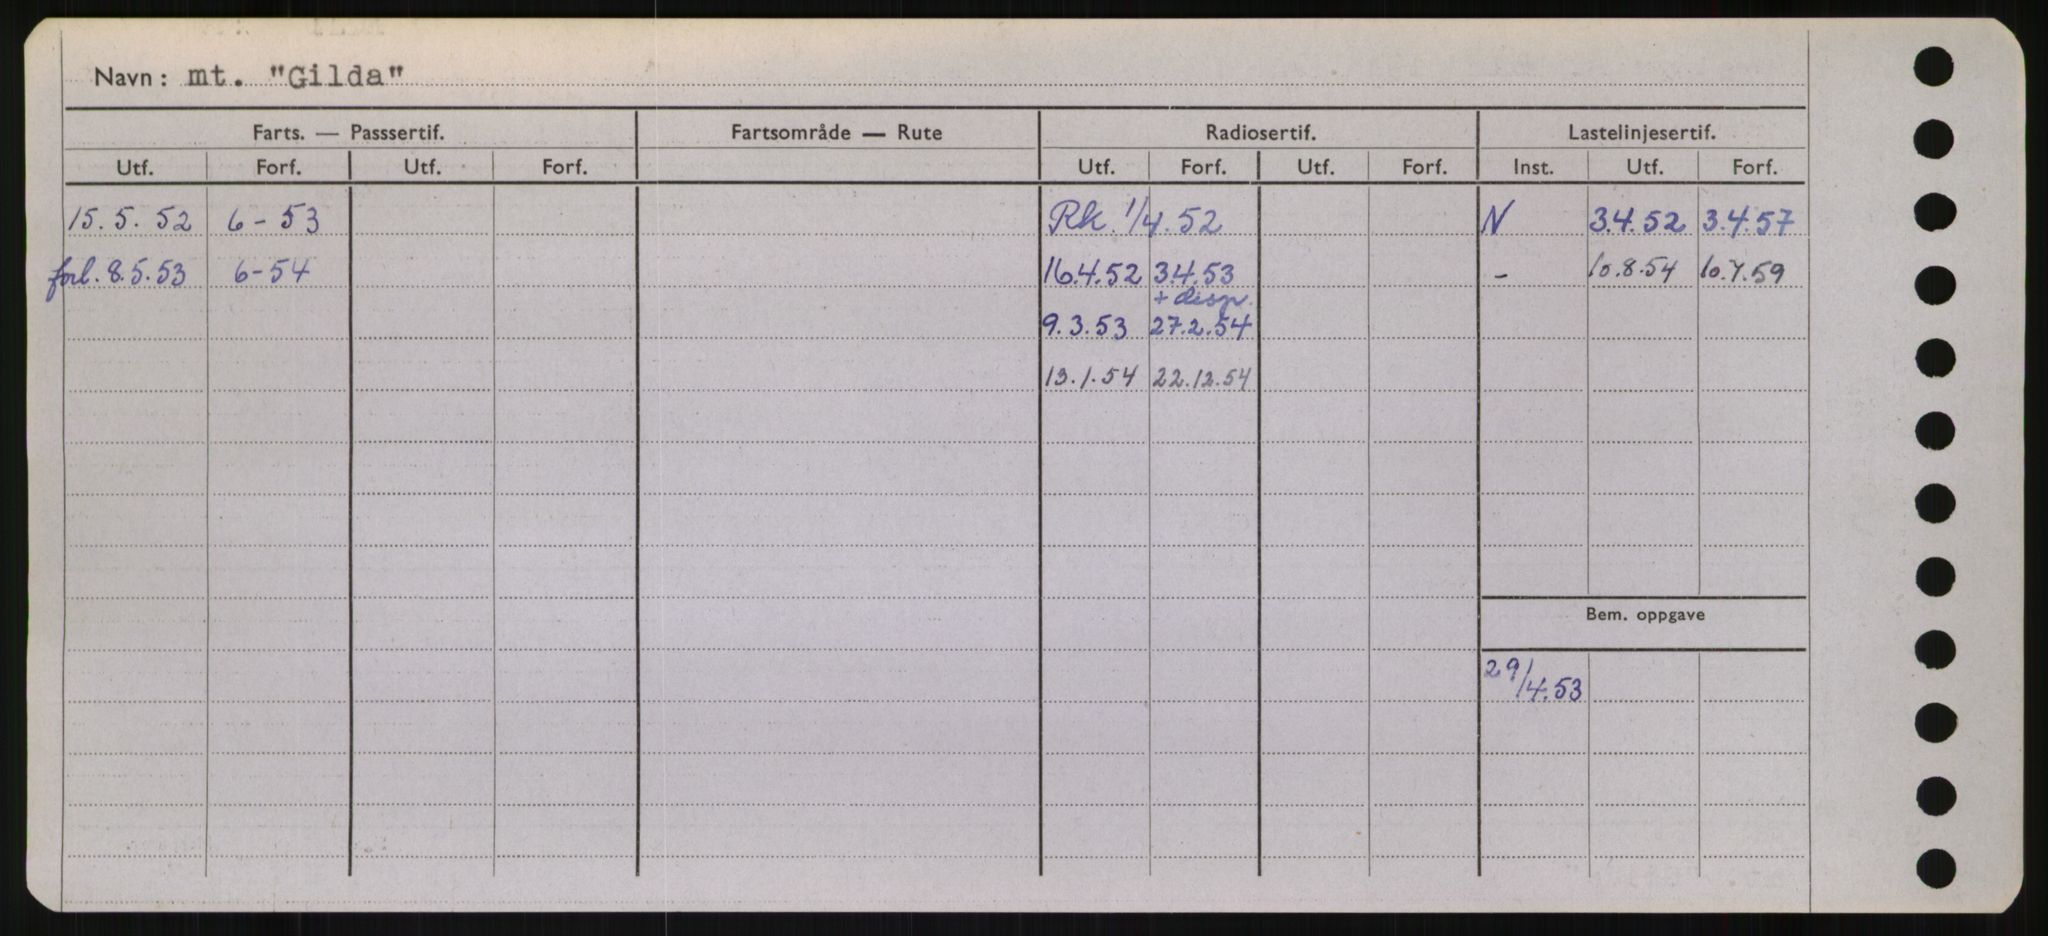 Navn: mt. "Gilda"
Farts. — Passsertif. Fartsområde — Rute Radiosertif. Lastelinjesertif.
Utf. Forf. Utf. Forf. Utf. Forf. Utf. Forf. Inst. Utf. Forf.
15.5.52 6-53 Rk. 1/4.52 N 3.4.52 3.4.57
forl. 8.5.53 6-54 16.4.52 3.4.53 - 10.8.54 10.7.59
+ disp.
9.3.53 27.2.54
13.1.54 22.12.54
Bem. oppgave
29/4.53